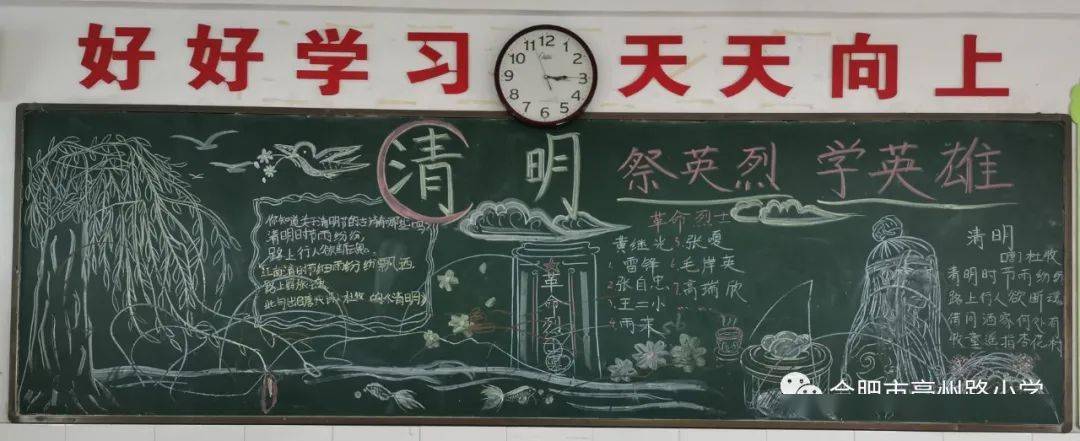 好好学习 天天向上
12
11
1
10
2
9
3
8
4
7
5
6
清明 祭英烈 学英雄
你知道关于清明节的古诗有哪些吗
清明时节雨纷纷
路上行人欲断魂
江南清明
革命烈士
革命烈士
黄继光 5.张嘎
1.雷锋 6.毛岸英
2.张自忠 7.高瑞欣
3.王二小
4.雨来
清明
杜牧
清明时节雨纷纷
路上行人欲断魂
借问酒家何处有
牧童遥指杏花村
合肥市亳州路小学